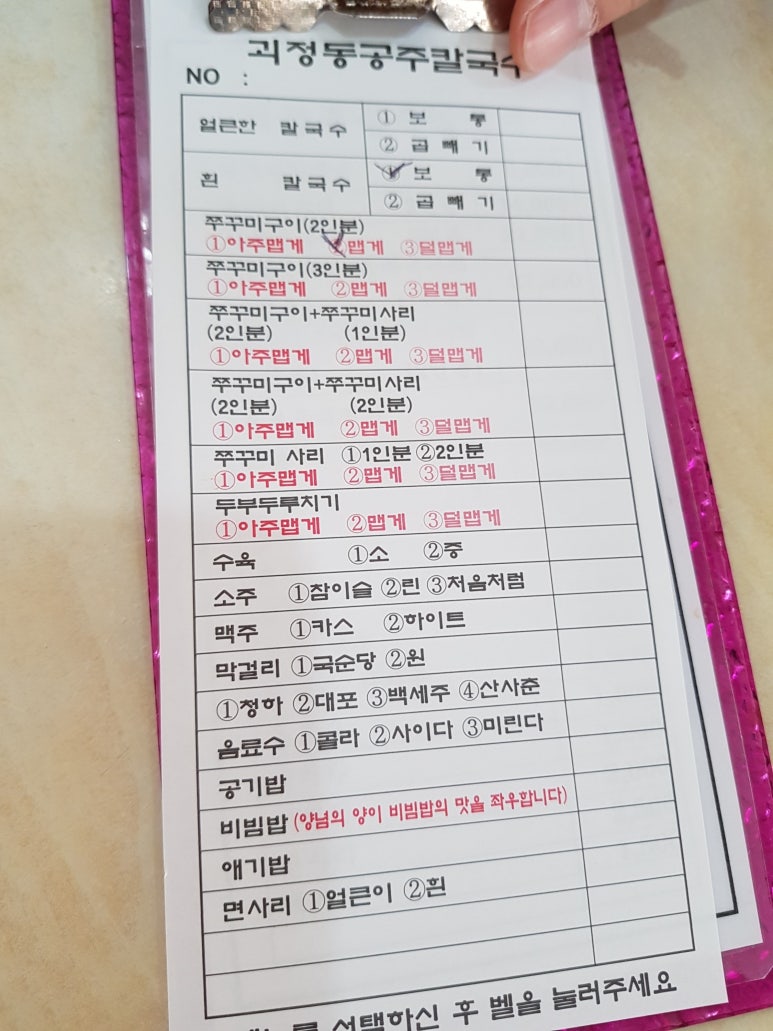 괴정동공주칼국수
NO :
얼큰한 칼국수 ① 보 통
② 곱 빼 기
흰 칼국수 ① 보 통
② 곱 빼 기
쭈꾸미구이(2인분)
①아주맵게 ②맵게 ③덜맵게
쭈꾸미구이(3인분)
①아주맵게 ②맵게 ③덜맵게
쭈꾸미구이+쭈꾸미사리
(2인분) (1인분)
①아주맵게 ②맵게 ③덜맵게
쭈꾸미구이+쭈꾸미사리
(2인분) (2인분)
①아주맵게 ②맵게 ③덜맵게
쭈꾸미 사리 ①1인분 ②2인분
①아주맵게 ②맵게 ③덜맵게
두부두루치기
①아주맵게 ②맵게 ③덜맵게
수육 ①소 ②중
소주 ①참이슬 ②린 ③처음처럼
맥주 ①카스 ②하이트
막걸리 ①국순당 ②원
①청하 ②대포 ③백세주 ④산사춘
음료수 ①콜라 ②사이다 ③미린다
공기밥
비빔밥 (양념의 양이 비빔밥의 맛을 좌우합니다)
애기밥
면사리 ①얼큰이 ②흰
선택하신 후 벨을 눌러주세요